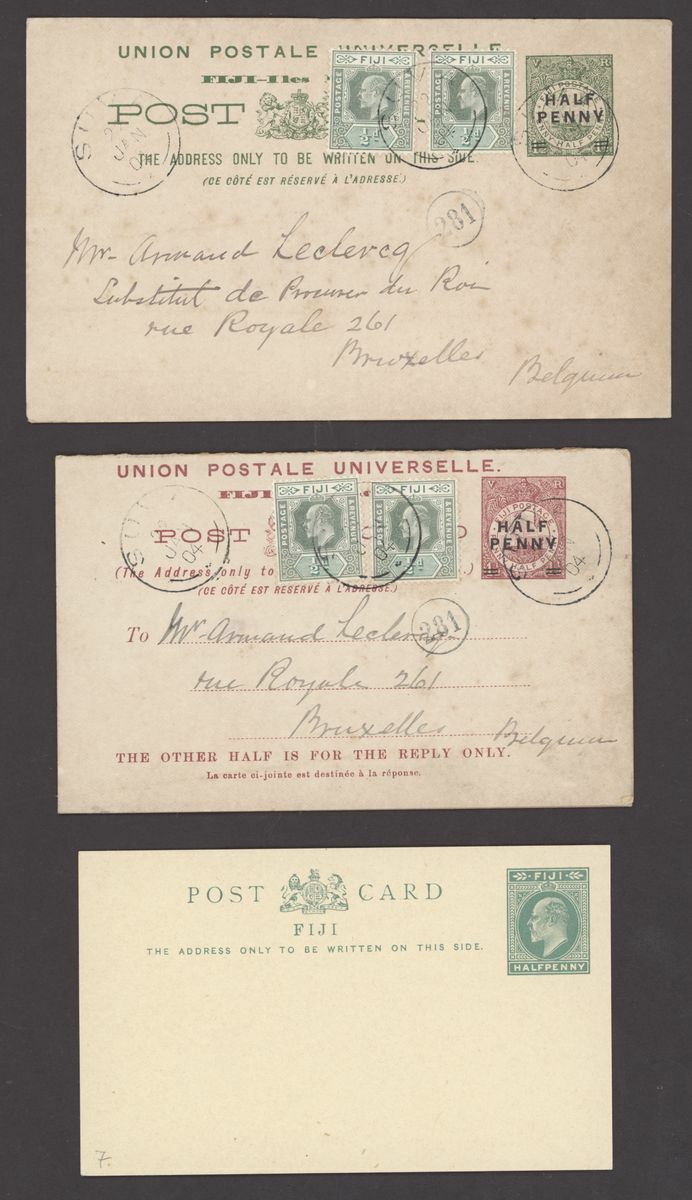 UNION POSTALE UNIVERSELLE.
FIJI-Iles
POST
THE ADDRESS ONLY TO BE WRITTEN ON THIS SIDE.
(CE CÔTÉ EST RÉSERVÉ À L'ADRESSE.)
FIJI
POSTAGE
REVENUE
½d
FIJI
POSTAGE
REVENUE
½d
V R
HALF
PENNY
SUVA
JAN
04
281
Mr Armand Leclercq
Substitut de Procureur du Roi
rue Royale 261
Bruxelles
Belgium
UNION POSTALE UNIVERSELLE.
FIJI
POST
(The Address only to
(CE CÔTÉ EST RÉSERVÉ À L'ADRESSE.)
FIJI
POSTAGE
REVENUE
½d
FIJI
POSTAGE
REVENUE
½d
V R
FIJI POSTAGE
HALF
PENNY
04
281
To Mr Armand Leclercq
rue Royale 261
Bruxelles
Belgium
THE OTHER HALF IS FOR THE REPLY ONLY.
La carte ci-jointe est destinée à la réponse.
POST CARD
FIJI
THE ADDRESS ONLY TO BE WRITTEN ON THIS SIDE.
FIJI
HALFPENNY
7.